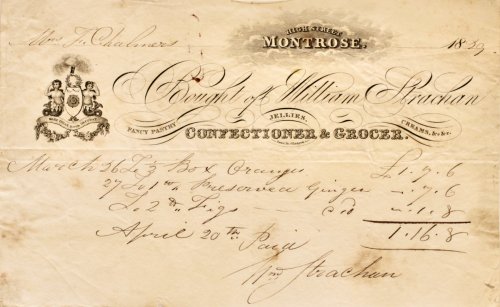 HIGH STREET
MONTROSE.
Mrs F. Chalmers
1839
Bought of William Strachan
FANCY PASTRY JELLIES, CREAMS, &c &c.
CONFECTIONER & GROCER.
March 26 To ½ Box Oranges £1.7.6
27 To 1 lb Preserved Ginger -.7.6
To 2 lb Figs -.1.8
1.16.8
April 20th Paid
Wm Strachan